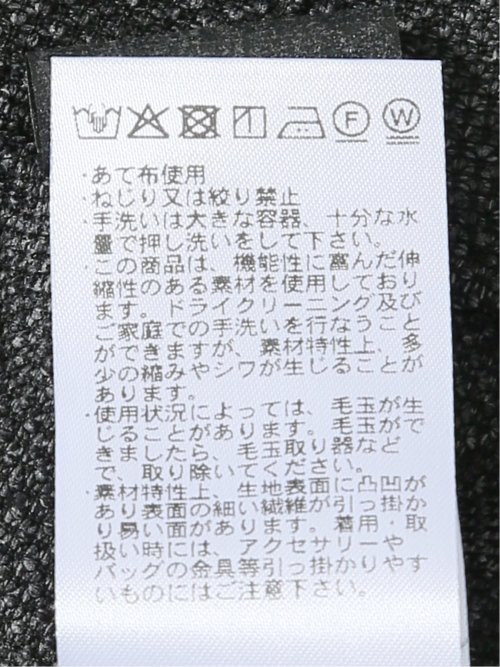 F W
・あて布使用
・ねじり又は絞り禁止
・手洗いは大きな容器、十分な水
量で押し洗いをして下さい。
・この商品は、機能性に富んだ伸
縮性のある素材を使用しており
ます。ドライクリーニング及び
ご家庭での手洗いを行なうこと
ができますが、素材特性上、多
少の縮みやシワが生じることが
あります。
・使用状況によっては、毛玉が生
じることがあります。毛玉がで
きましたら、毛玉取り器など
で、取り除いてください。
・素材特性上、生地表面に凸凹が
あり表面の細い繊維が引っ掛か
り易い面があります。着用・取
扱い時には、アクセサリーや
バッグの金具等引っ掛かりやす
いものにはご注意下さい。